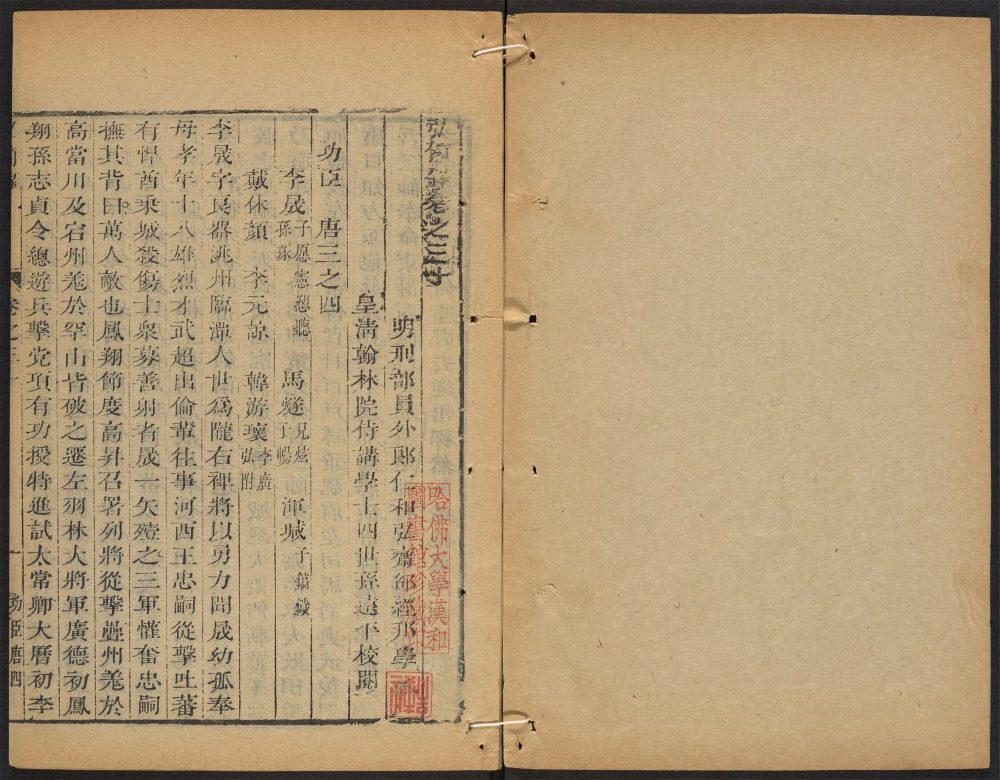 弘簡錄卷之三十
明刑部員外郎仁和弘齋邵經邦學
皇清翰林院侍講學士四世孫遠平校閱
功臣 唐三之四
李晟 子愿憲愬聽 孫琢 馬燧 兄炫 子暢 渾瑊 子鎬鐬
戴休顏 李元諒 韓游瓌 李廣弘附
李晟字良器洮州臨潭人世爲隴右裨將以勇力聞晟幼孤奉
母孝年十八雄烈才武超出倫輩往事河西王忠嗣從擊吐蕃
有悍酋乘城殺傷士衆募善射者晟一矢殪之三軍懽奮忠嗣
撫其背曰萬人敵也鳳翔節度高昇召署列將從擊疊州羗於
高當川及宕州羗於罕山皆破之遷左羽林大將軍廣德初鳳
翔孫志貞令總遊兵擊党項有功授特進試太常卿大曆初李
卷之三十 一 功臣唐四
哈佛大學漢和
圖書館珍藏印